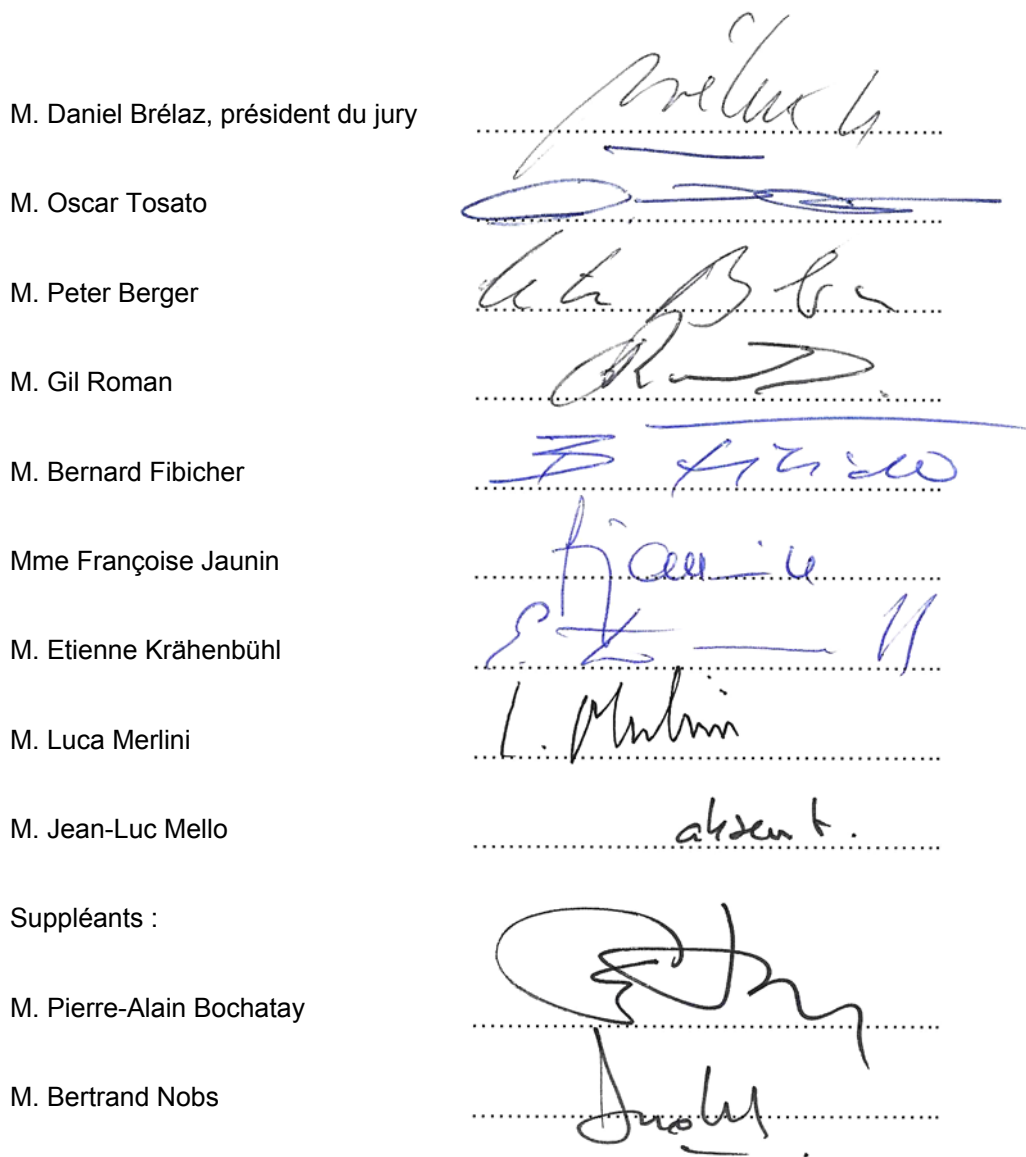 M. Daniel Brélaz, président du jury
M. Oscar Tosato
M. Peter Berger
M. Gil Roman
M. Bernard Fibicher
Mme Françoise Jaunin
M. Etienne Krähenbühl
M. Luca Merlini L. Merlini
M. Jean-Luc Mello absent.
Suppléants :
M. Pierre-Alain Bochatay
M. Bertrand Nobs